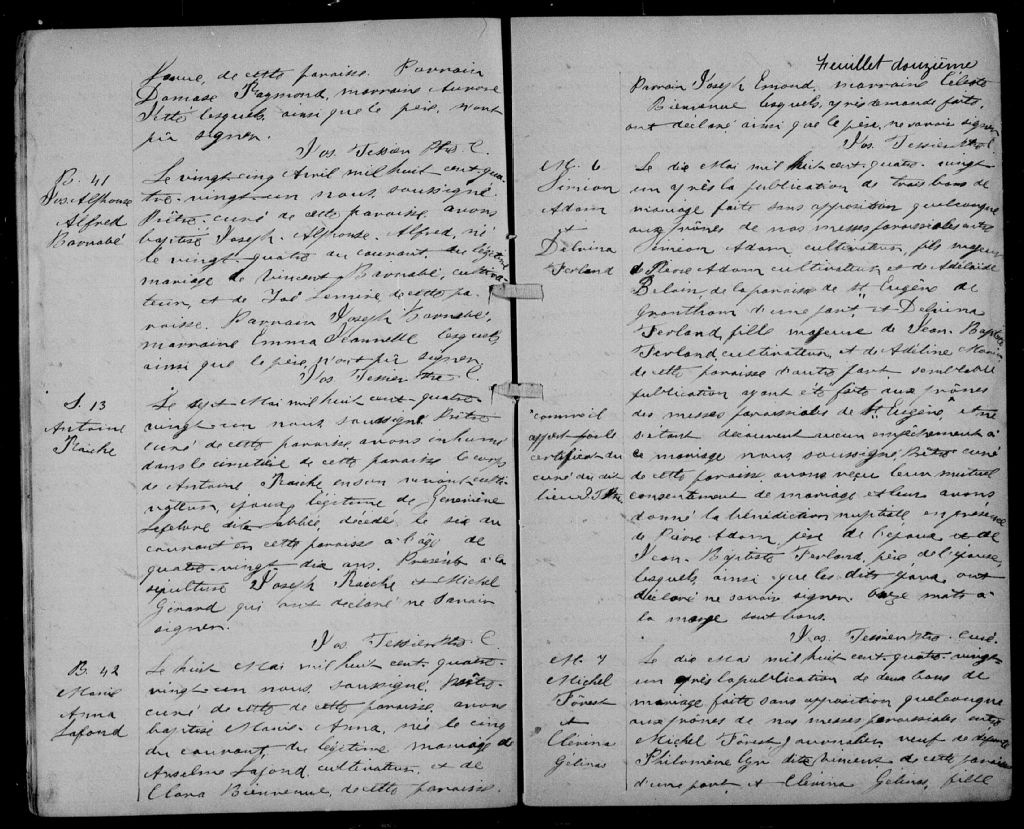 de cette paroisse. Parrain
Damase Raymond, marraine Aurore
lesquels ainsi que le père, n'ont
pu signer.
Jos. Tessier Ptre C.
B. 41
Jos. Alphonse
Alfred
Barnabé
Le vingt-cinq Avril mil huit cent qua-
tre-vingt-un nous, soussigné
Prêtre-curé de cette paroisse, avons
baptisé Joseph-Alphonse-Alfred, né
le vingt-quatre du courant, du légitime
mariage de Vincent Barnabé, cultiva-
teur, et de Lemire de cette pa-
roisse. Parrain Joseph Barnabé,
marraine Emma Jeannette lesquels
ainsi que le père, n'ont pu signer.
Jos. Tessier Ptre C.
S. 13
Antoine
Raiche
Le sept Mai mil huit cent quatre-
vingt-un nous soussigné Prêtre
curé de cette paroisse avons inhumé
dans le cimetière de cette paroisse le corps
de Antoine Raiche en son vivant culti-
vateur, époux légitime de Geneviève
Lefebvre dite décédé le six du
courant en cette paroisse à l'âge de
quatre-vingt dix ans. Présents à la
sépulture Joseph Raiche et Michel
Girard qui ont déclaré ne savoir
signer.
Jos. Tessier Ptre C.
B. 42
Marie
Anna
Lafond
Le huit Mai mil huit cent quatre-
vingt-un nous, soussigné, Prêtre-
curé de cette de cette paroisse, avons
baptisé Marie-Anna, née le cinq
du courant, du légitime mariage de
Anselme Lafond, cultivateur, et de
Clara Bienvenue, de cette paroisse.
Feuillet douzième
Parrain Joseph Emond, marraine Céleste
Bienvenue lesquels, après demande faite,
ont déclaré ainsi que le père, ne savoir signer
Jos. Tessier Ptre C.
M. 6
Siméon
Adam
et
Delvina
Ferland
Le dix Mai mil huit cent quatre-vingt-
un après la publication de trois bans de
mariage faite sans opposition quelconque
aux prônes de nos messes paroissiales entre
Siméon Adam cultivateur, fils majeur
de Pierre Adam cultivateur et de Adélaïde
Belain de la paroisse de St Eugène de
Grantham d'une part et Delvina
Ferland, fille majeure de Jean-Baptiste
Ferland, cultivateur, et de Adéline
de cette paroisse d'autre part semblable
publication ayant été faite aux prônes
des messes paroissiales de St Eugène, et ne
s'étant découvert aucun empêchement à
ce mariage nous, soussigné, Prêtre-curé
de cette paroisse, avons reçu leur mutuel
consentement de mariage et leur avons
donné la bénédiction nuptiale en présence
de Pierre Adam, père de l'époux et de
Jean-Baptiste Ferland, père de l'épouse,
lesquels, ainsi que les dits époux, ont
déclaré ne savoir signer. Onze mots à
la marge sont bons.
Jos. Tessier Ptre curé.
comme il
appert par le
certificat du
curé du dit
lieu J. T. Ptre
M. 7
Michel
Forest
et
Clérina
Gélinas
Le dix Mai mil huit cent quatre-vingt-
un après la publication de deux bans de
mariage faite sans opposition quelconque
aux prônes de nos messes paroissiales entre
Michel Forest, journalier, veuf de défunte
Philomène Cyr dite Vincent de cette paroisse
d'une part, et Clérina Gélinas, fille